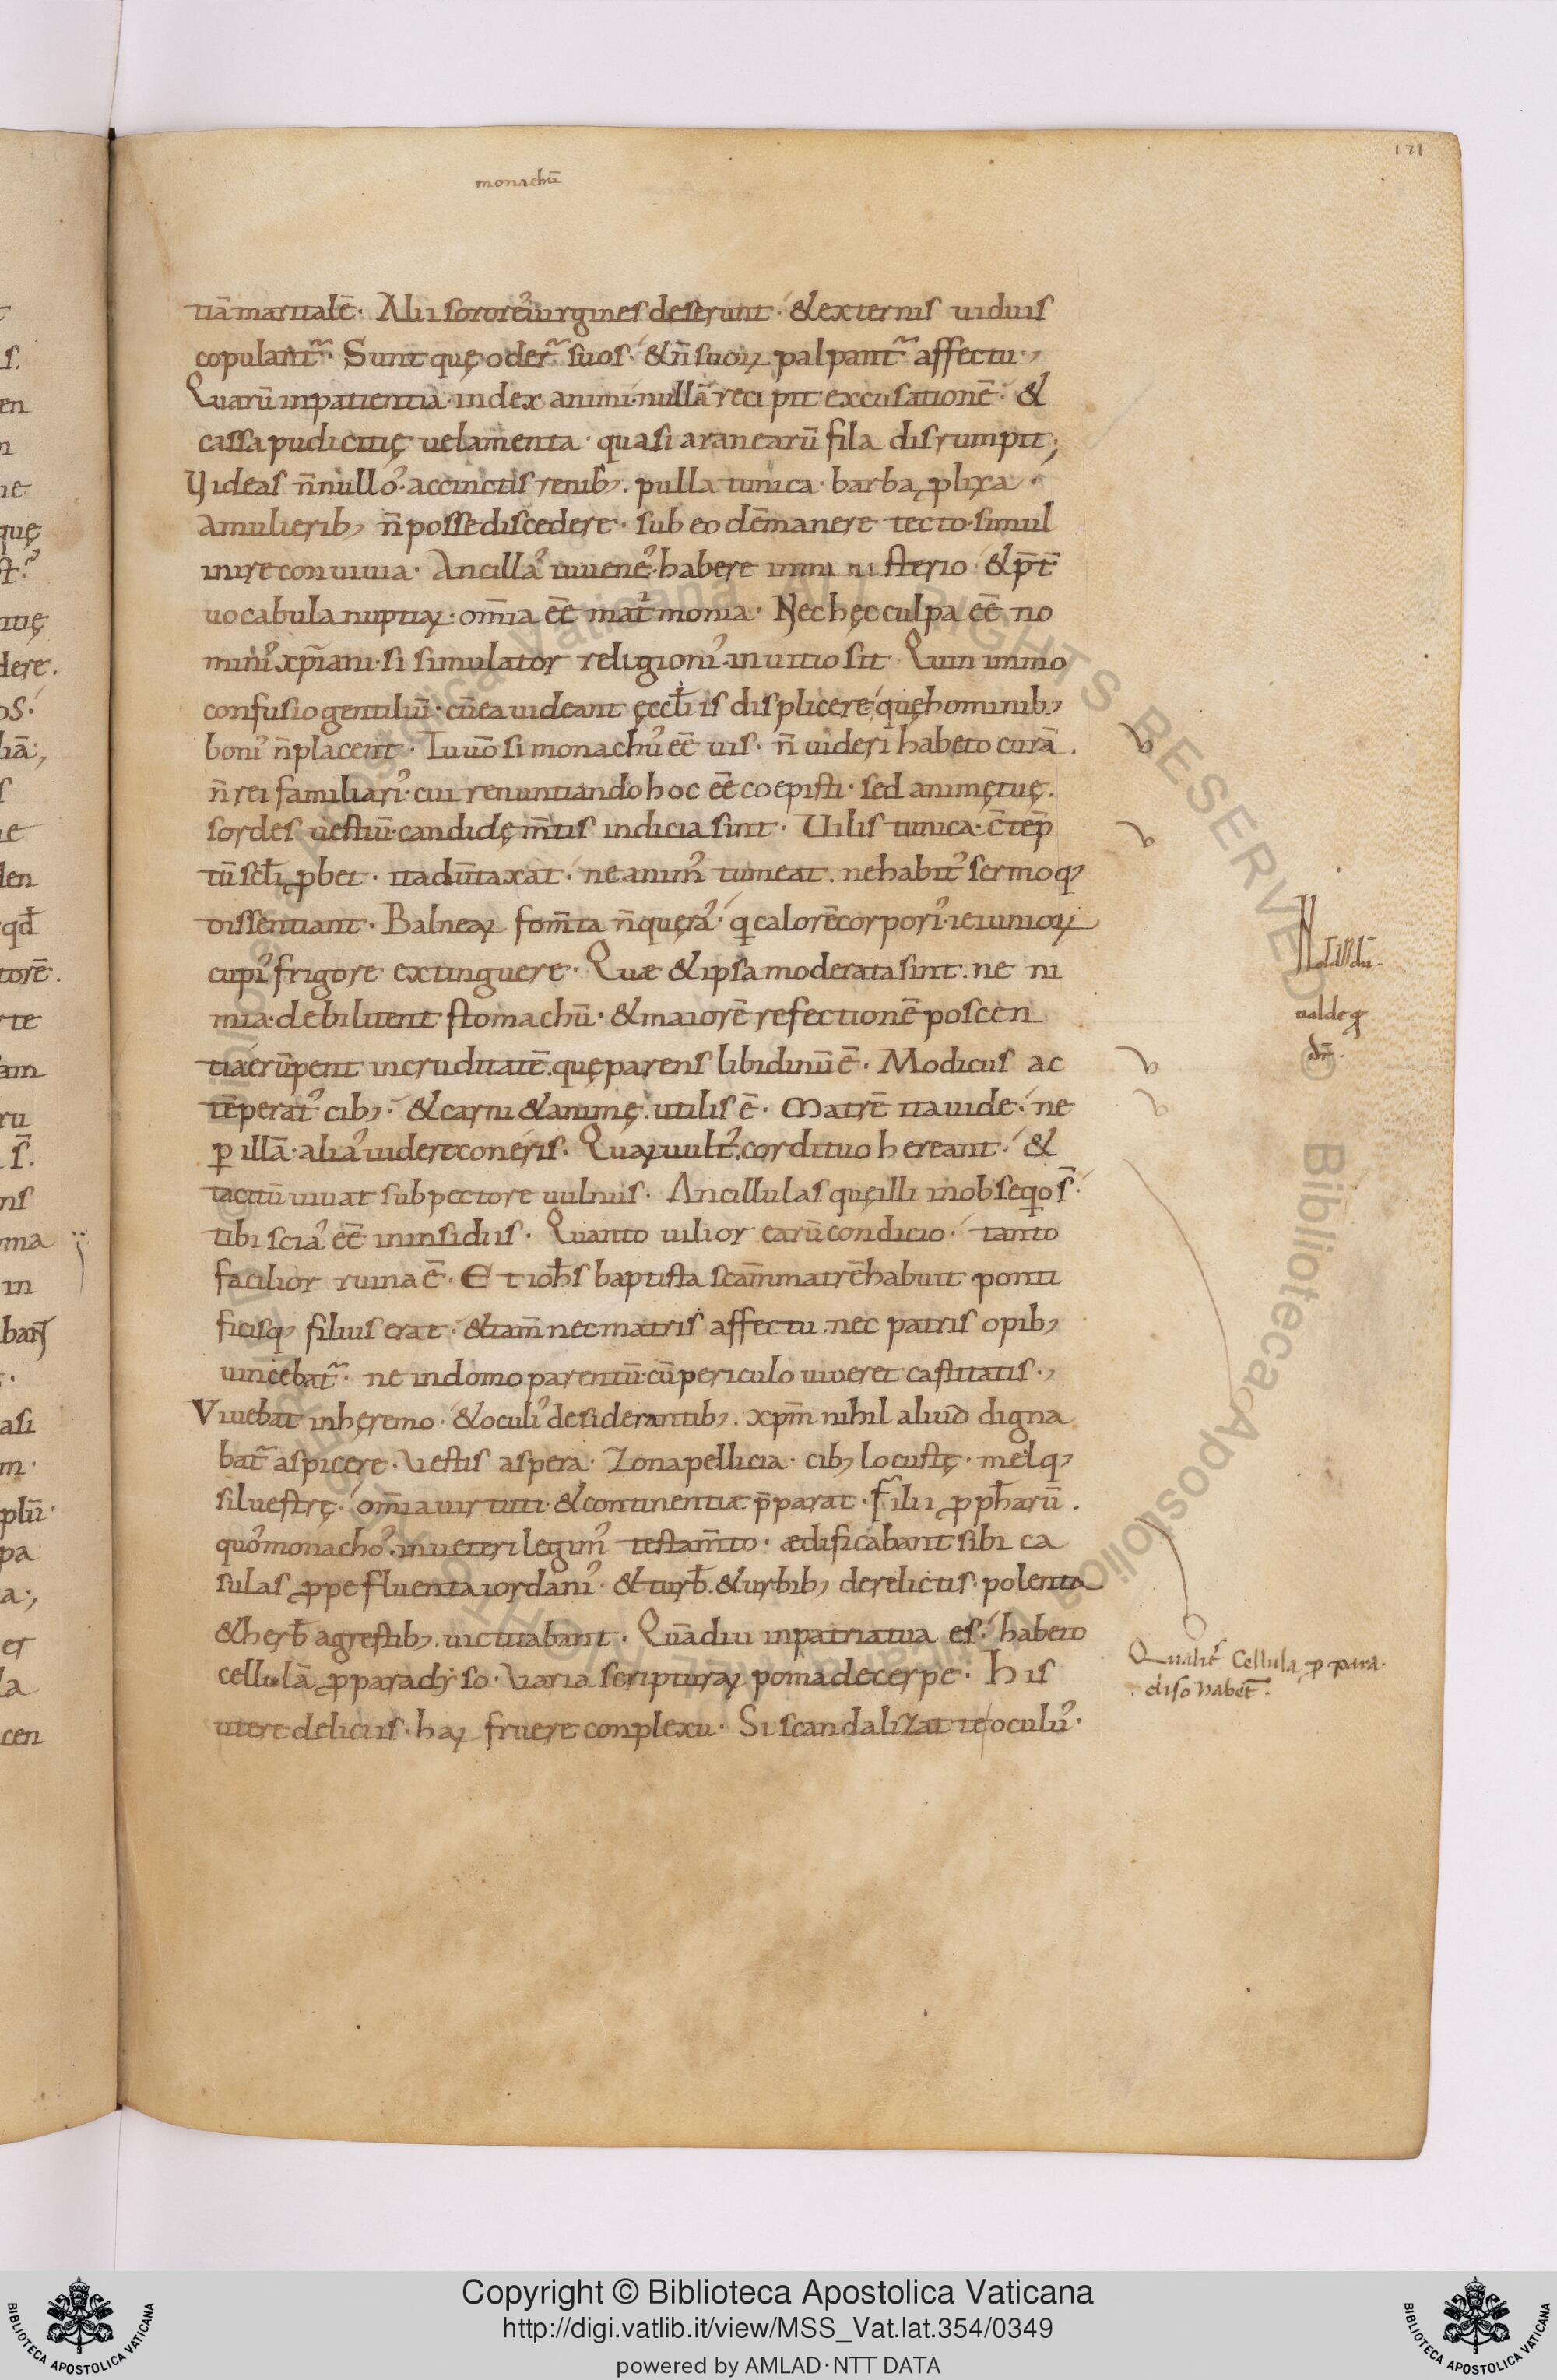 171
monachū
tiā maritalē· Alii sorores uirgines deserunt· & externis uiduis
copulant᷑· Sunt quę oder᷑ suos· & n̄ suoꝝ palpant᷑ affectu·,
Quarū inpatientia· index animi· nullā recipit excusationē· &
cassa pudicitię uelamenta· quasi aranearū fila disrumpit;
Videas n̄nullos· accinctis renib;. pulla tunica· barba ꝓlixa·
a mulierib; n̄ posse discedere· sub eodē manere tecto· simul
inire conuiuia· Ancillas iuuenes· habere in ministerio· & p̄t̄
uocabula nuptiaꝝ· om̄ia eē matrimonia· Nec hęc culpa eē no
minis xp̄iani· si simulator religionis· in uitio sit Quin immo
confusio gentiliū· cū ea uideant ęccl̄iis displicere· quę hominib;
bonis n̄ placent· Tu uō si monachus eē uis· n̄ uideri habeto curā.
n̄ rei familiaris· cui renuntiando hoc eē coepisti· sed animę tuę.
sordes uestiū· candidę m̄tis indicia sint· Uilis tunica· c̄tēp
tū scl̄i ꝓbet· ita dūtaxat· ne anim᾽ tumeat. ne habit᾽ sermoq;
dissentiant· Balneaꝝ fom̄ta n̄ queras· q calorē corporis· ieiunioꝝ
cupis frigore extinguere· Quæ & ipsa moderata sint. ne ni
mia· debilitent stomachū· & maiorē refectionē poscen
tia erūpent in cruditatē. quę parens libidinū ē· Modicus ac
tēperat᾽ cib;· & carni & animę. utilis ē· Matrē ita uide· ne
ꝑ illā· alias uidere coneris. Quaꝝ uult᾽. cordi tuo hereant· &
tacitū uiuat sub pectore uulnus· Ancillulas quę illi in obseqo s̄·
tibi scias eē in insidiis· Quanto uilior earū condicio· tanto
facilior ruina ē· Et ioh̄s baptista scam̄ matrē habuit ponti
ficisq; filius erat· & tam̄ nec matris affectu. nec patris opib;
uincebat᷑· ne in domo parentū· cū periculo uiueret castitatis·,
Viuebat in hęremo· & oculis desiderantib;. xp̄m nihil aliud digna
bat᷑ aspicere· Vestis aspera· Zona pellicia· cib; locustę· melq;
siluestrę· om̄ia uirtuti· & continentiæ p̄parat· Filii ꝓph̄arū.
quos monachos. in ueteri legim᾽ testam̄to· ædificabant sibi ca
sulas ꝓpe fluenta iordanis· & turb̄. & urbib; derelictis· polenta
& herb̄ agrestib;. uictitabant· Quādiu in patria tua es· habeto
cellulā ꝓ paradyso· Varia scripturaꝝ poma decerpe· His
utere deliciis· haꝝ fruere conplexu· Si scandalizat te oculus·
ualde
Qualit᷑ Cellula ꝓ para·
diso habet᷑·
Copyright © Biblioteca Apostolica Vaticana
http://digi.vatlib.it/view/MSS_Vat.lat.354/0349
powered by AMLAD·NTT DATA
BIBLIOTECA APOSTOLICA VATICANA
BIBLIOTECA APOSTOLICA VATICANA